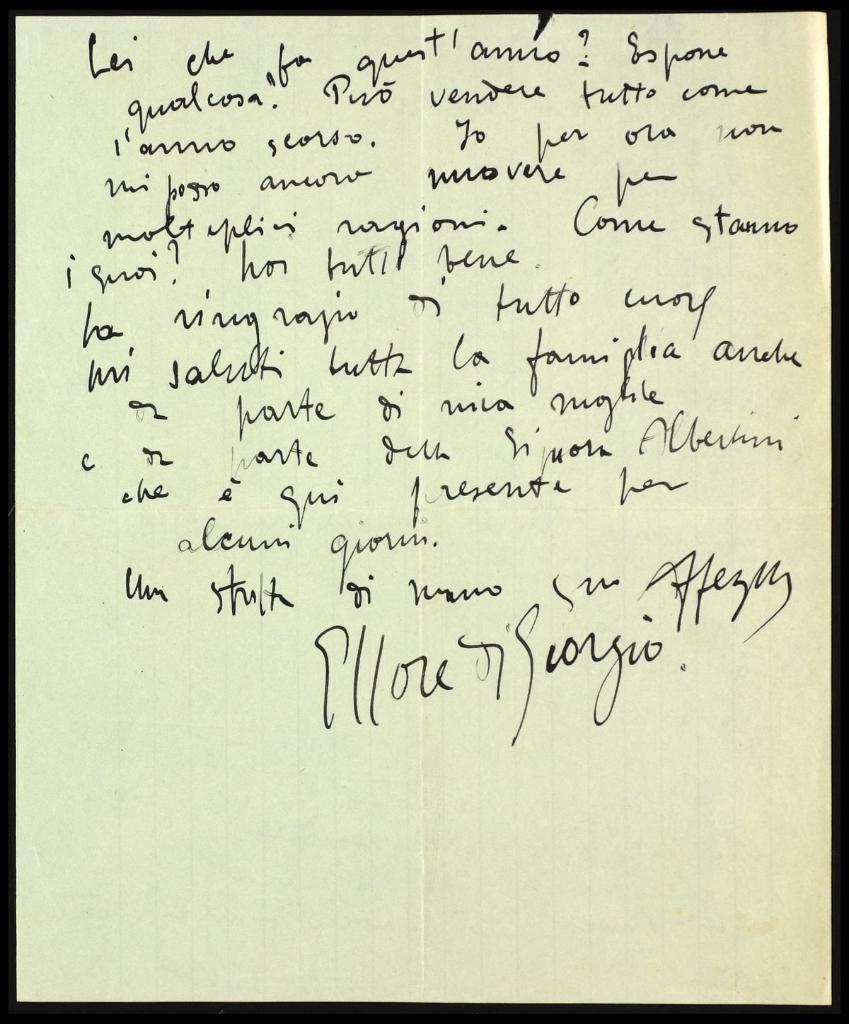 Lei che fa quest'anno? Espone
"qualcosa". Può vendere tutto come
l'anno scorso. Io per ora non
mi posso ancora muovere per
molteplici ragioni. Come stanno
i suoi? Noi tutti bene.
La ringrazio di tutto cuore
Mi saluti tutta la famiglia anche
da parte di mia moglie
e da parte della Signora Albertini
che è qui presente per
alcuni giorni.
Una stretta di mano suo
Ettore di Giorgio.